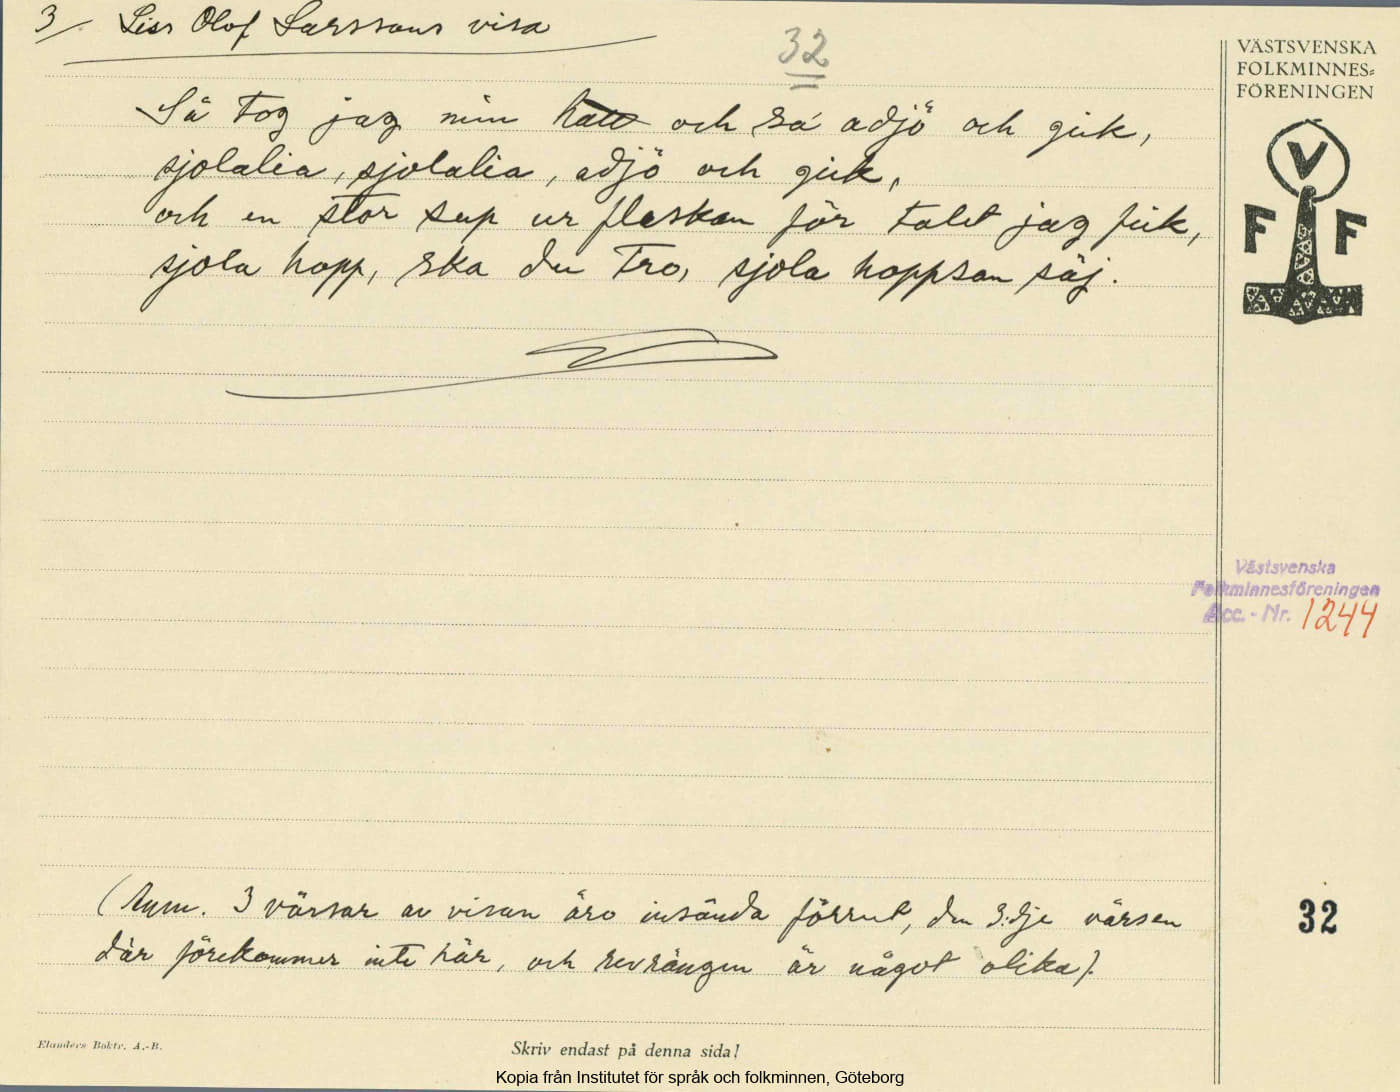 3/. Liss Olof Larssons visa
32
VÄSTSVENSKA
FOLKMINNES=
FÖRENINGEN
V
F F
Så tog jag min hatt och sa adjö och gick,
sjolalia, sjolalia, adjö och gick,
och en stor sup ur flaskan för talet jag fick,
sjola hopp, ska du tro, sjola hoppsan säj.
Västsvenska
Folkminnesföreningen
Acc. - Nr. 1244
(Anm. 3 värsar av visan äro insända förrut, den 3:dje värsen
32
där förekommer inte här, och är något olika).
Elanders Boktr. A.-B.
Skriv endast på denna sida!
Kopia från Institutet för språk och folkminnen, Göteborg